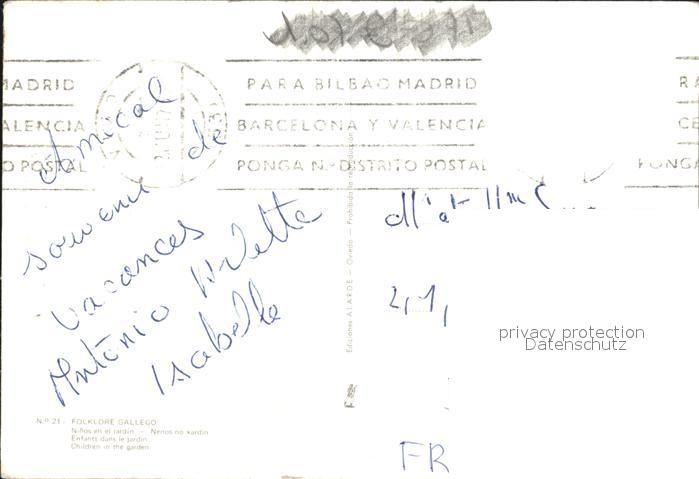 MADRID PARA BILBAO MADRID
ALENCIA BARCELONA Y VALENCIA CE
O POSTAL PONGA N.º DISTRITO POSTAL PONGA
Amical
souvenir de
vacances
António Arlette
Isabelle
N.º 21 - FOLKLORE GALLEGO
Niños en el jardín — Nenos no xardín
Enfants dans le jardin
Children in the garden
Ediciones ALARDE — Oviedo — Prohibida la reproducción
M. et Mme
2, 1,
FR
privacy protection
Datenschutz